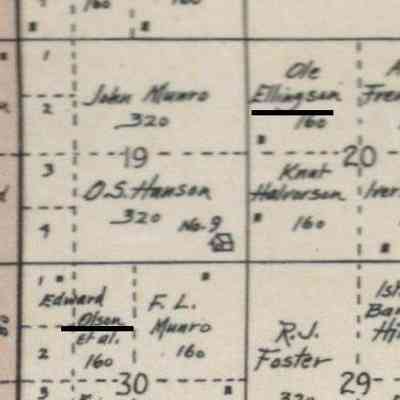 160
160
1
2
John Munro
320
19
3
O.S. Hanson
320
No. 9
4
Ole
Ellingson
160
20
Knut
Halvorson
160
1
Edward
Olson
et al.
160
2
F. L.
Munro
160
30
3
R.J.
Foster
320
29